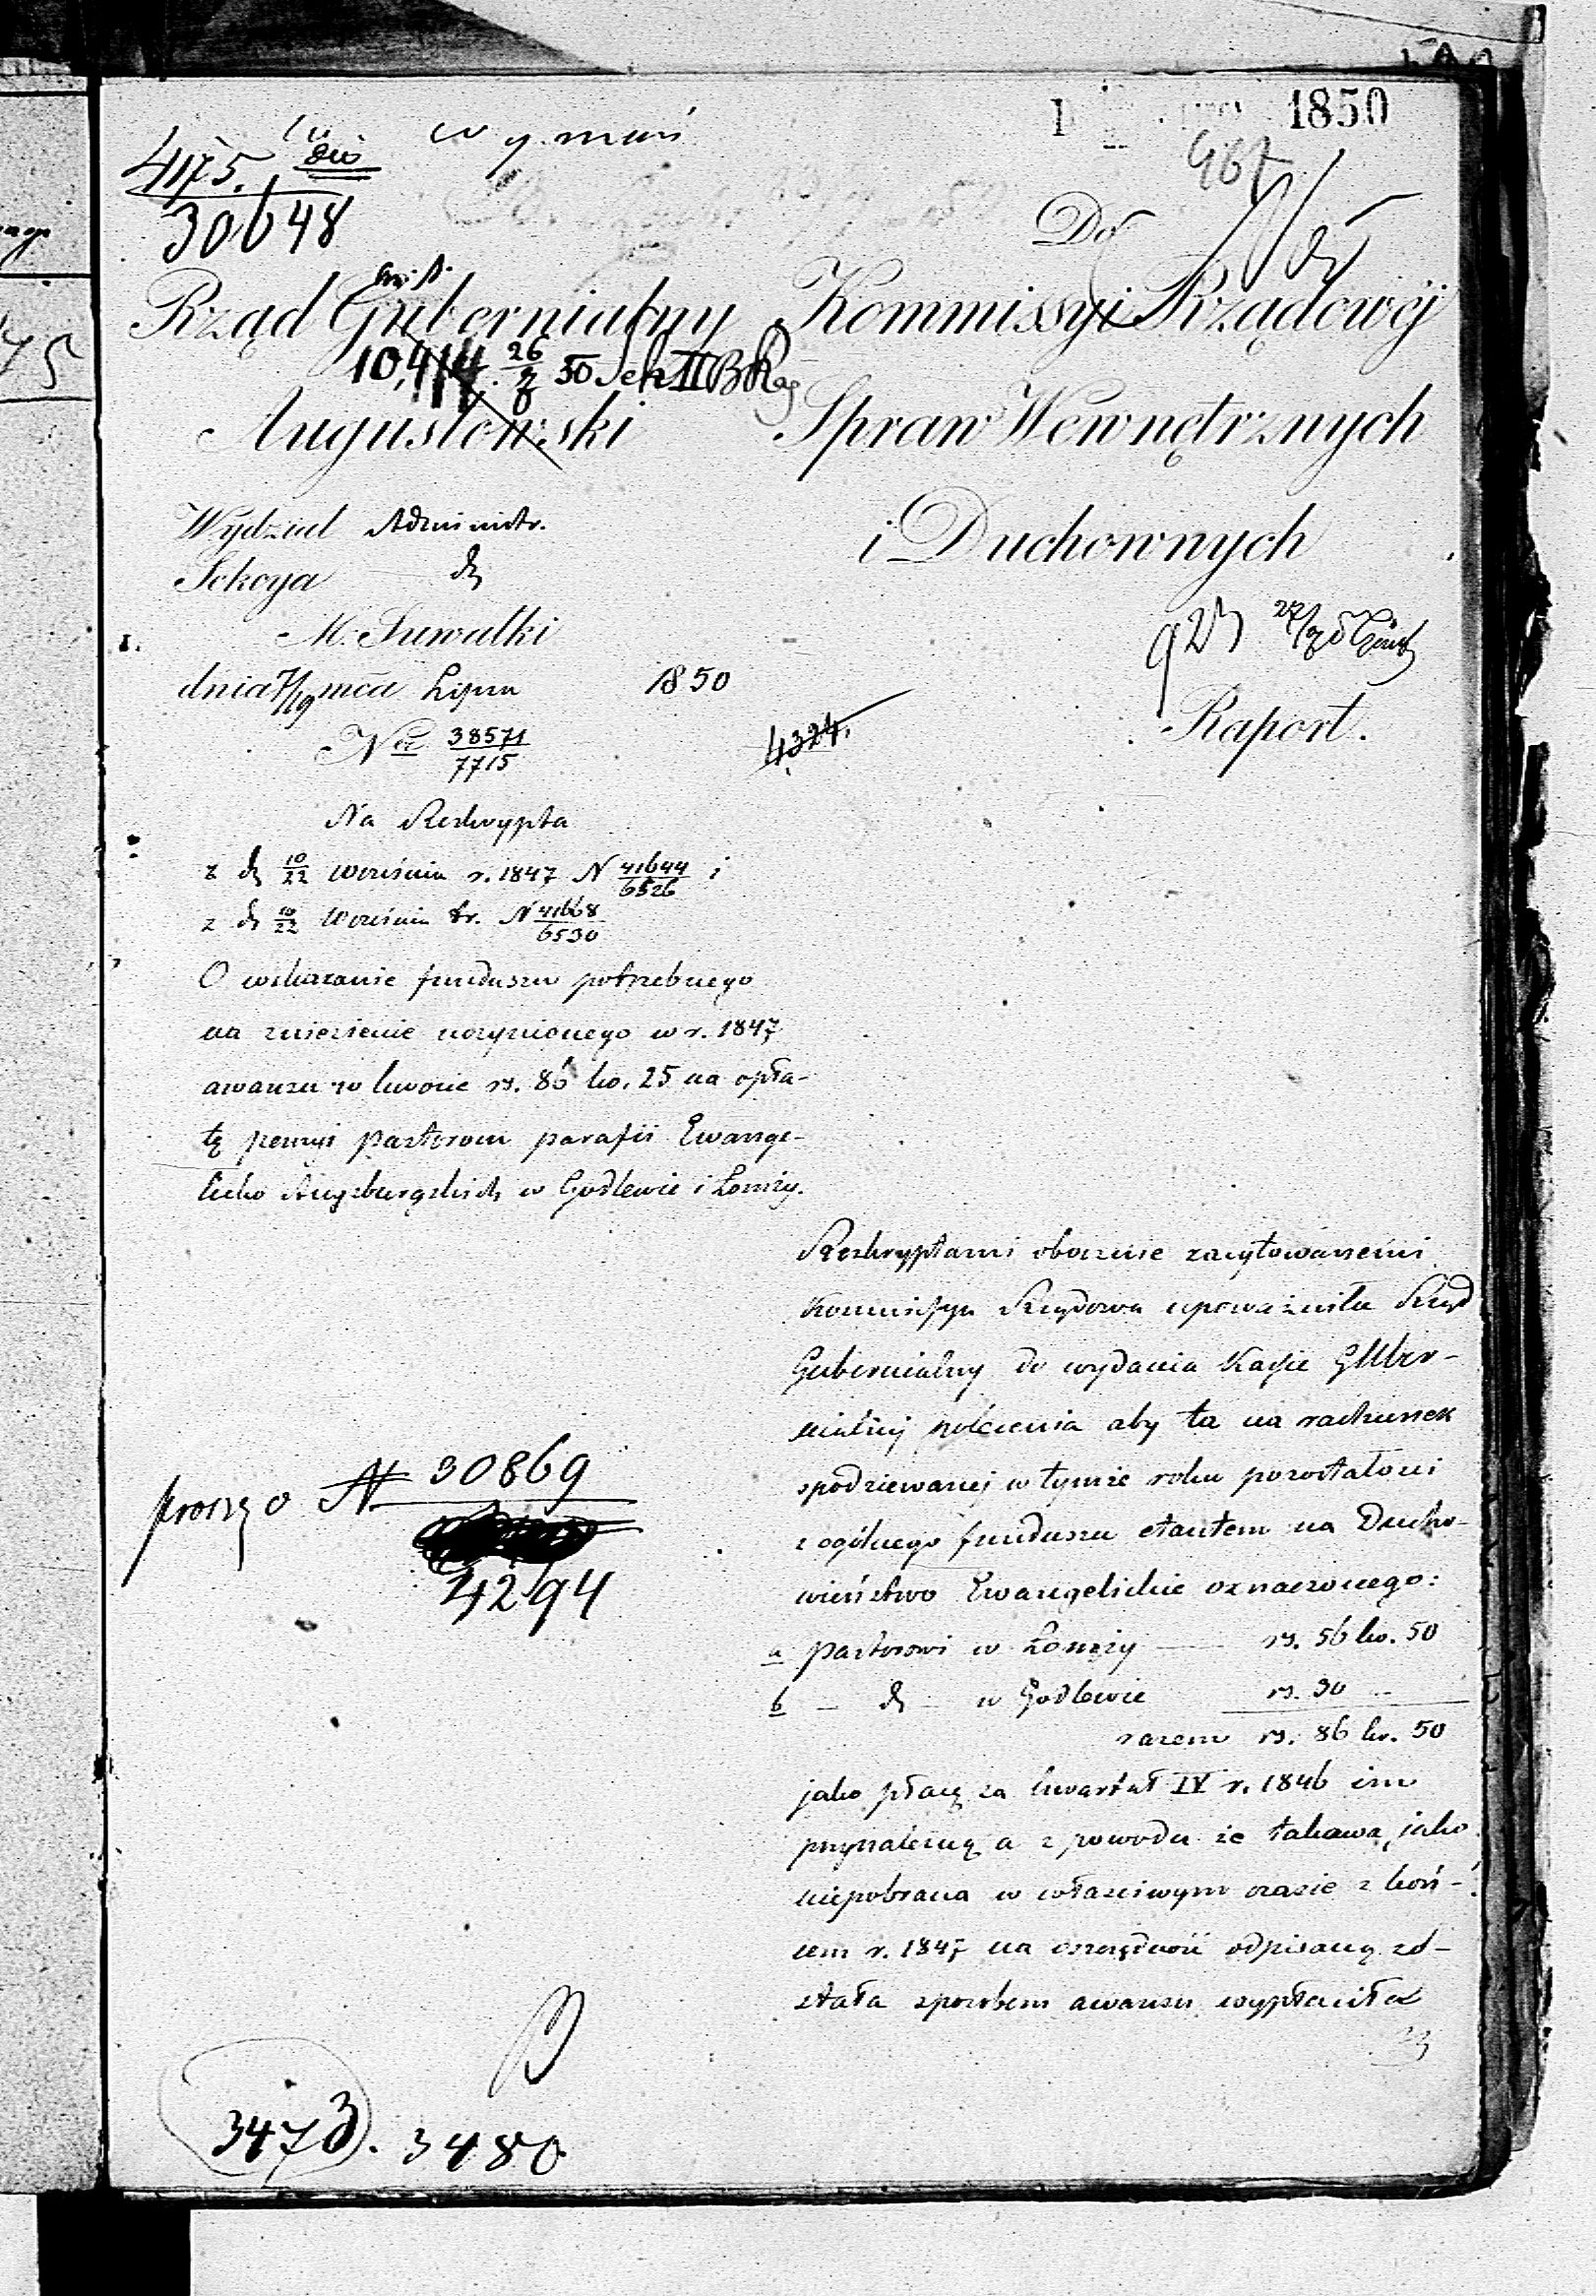 1850
4175.
30648
967
Do
Rząd Gubernialny
Kommissyi Rządowéj
10,414. 26/7 50 Sek II B
Augustowski
Spraw Wewnętrznych
i Duchownych
Wydział Administr.
Sekcya
M. Suwałki
dnia 7/19 mca Lipca 1850
No 38571/7715
923 27/7
4324.
Raport.
Na Reskrypta
z d 10/22 Września r. 1847 N 41644/6526 i
z d 10/22 Września t.r. N 41668/6530
O wskazanie funduszu potrzebnego
na zniesienie uczynionego w r. 1847
awansu w kwocie rs. 86 ko. 25 na opła-
tę pensyi pastorom parafii Ewange-
licko Augsburgskich w Godlewie i Łomży.
Reskryptami obocznie zacytowanemi
Kommissya Rządowa upoważniła Rząd
Gubernialny do wydania Kassie Guber-
nialnej polecenia aby ta na rachunek
spodziewanej w tymże roku pozostałości
z ogólnego funduszu etatem na Ducho-
wieństwo Ewangelickie oznaczonego:
a pastorowi w Łomży — rs. 56 ko. 50
b — d — w Godlewie rs. 30 —
razem rs. 86 ko. 50
jako płacę za kwartał IV r. 1846 im
przynależną a z powodu że takowa jako
niepobrana w właściwym czasie z koń-
cem r. 1847 na oszczędność odpisaną zo-
stała sposobem awansu wypłaciła
proszę o N 30869
4294
3473. 3480